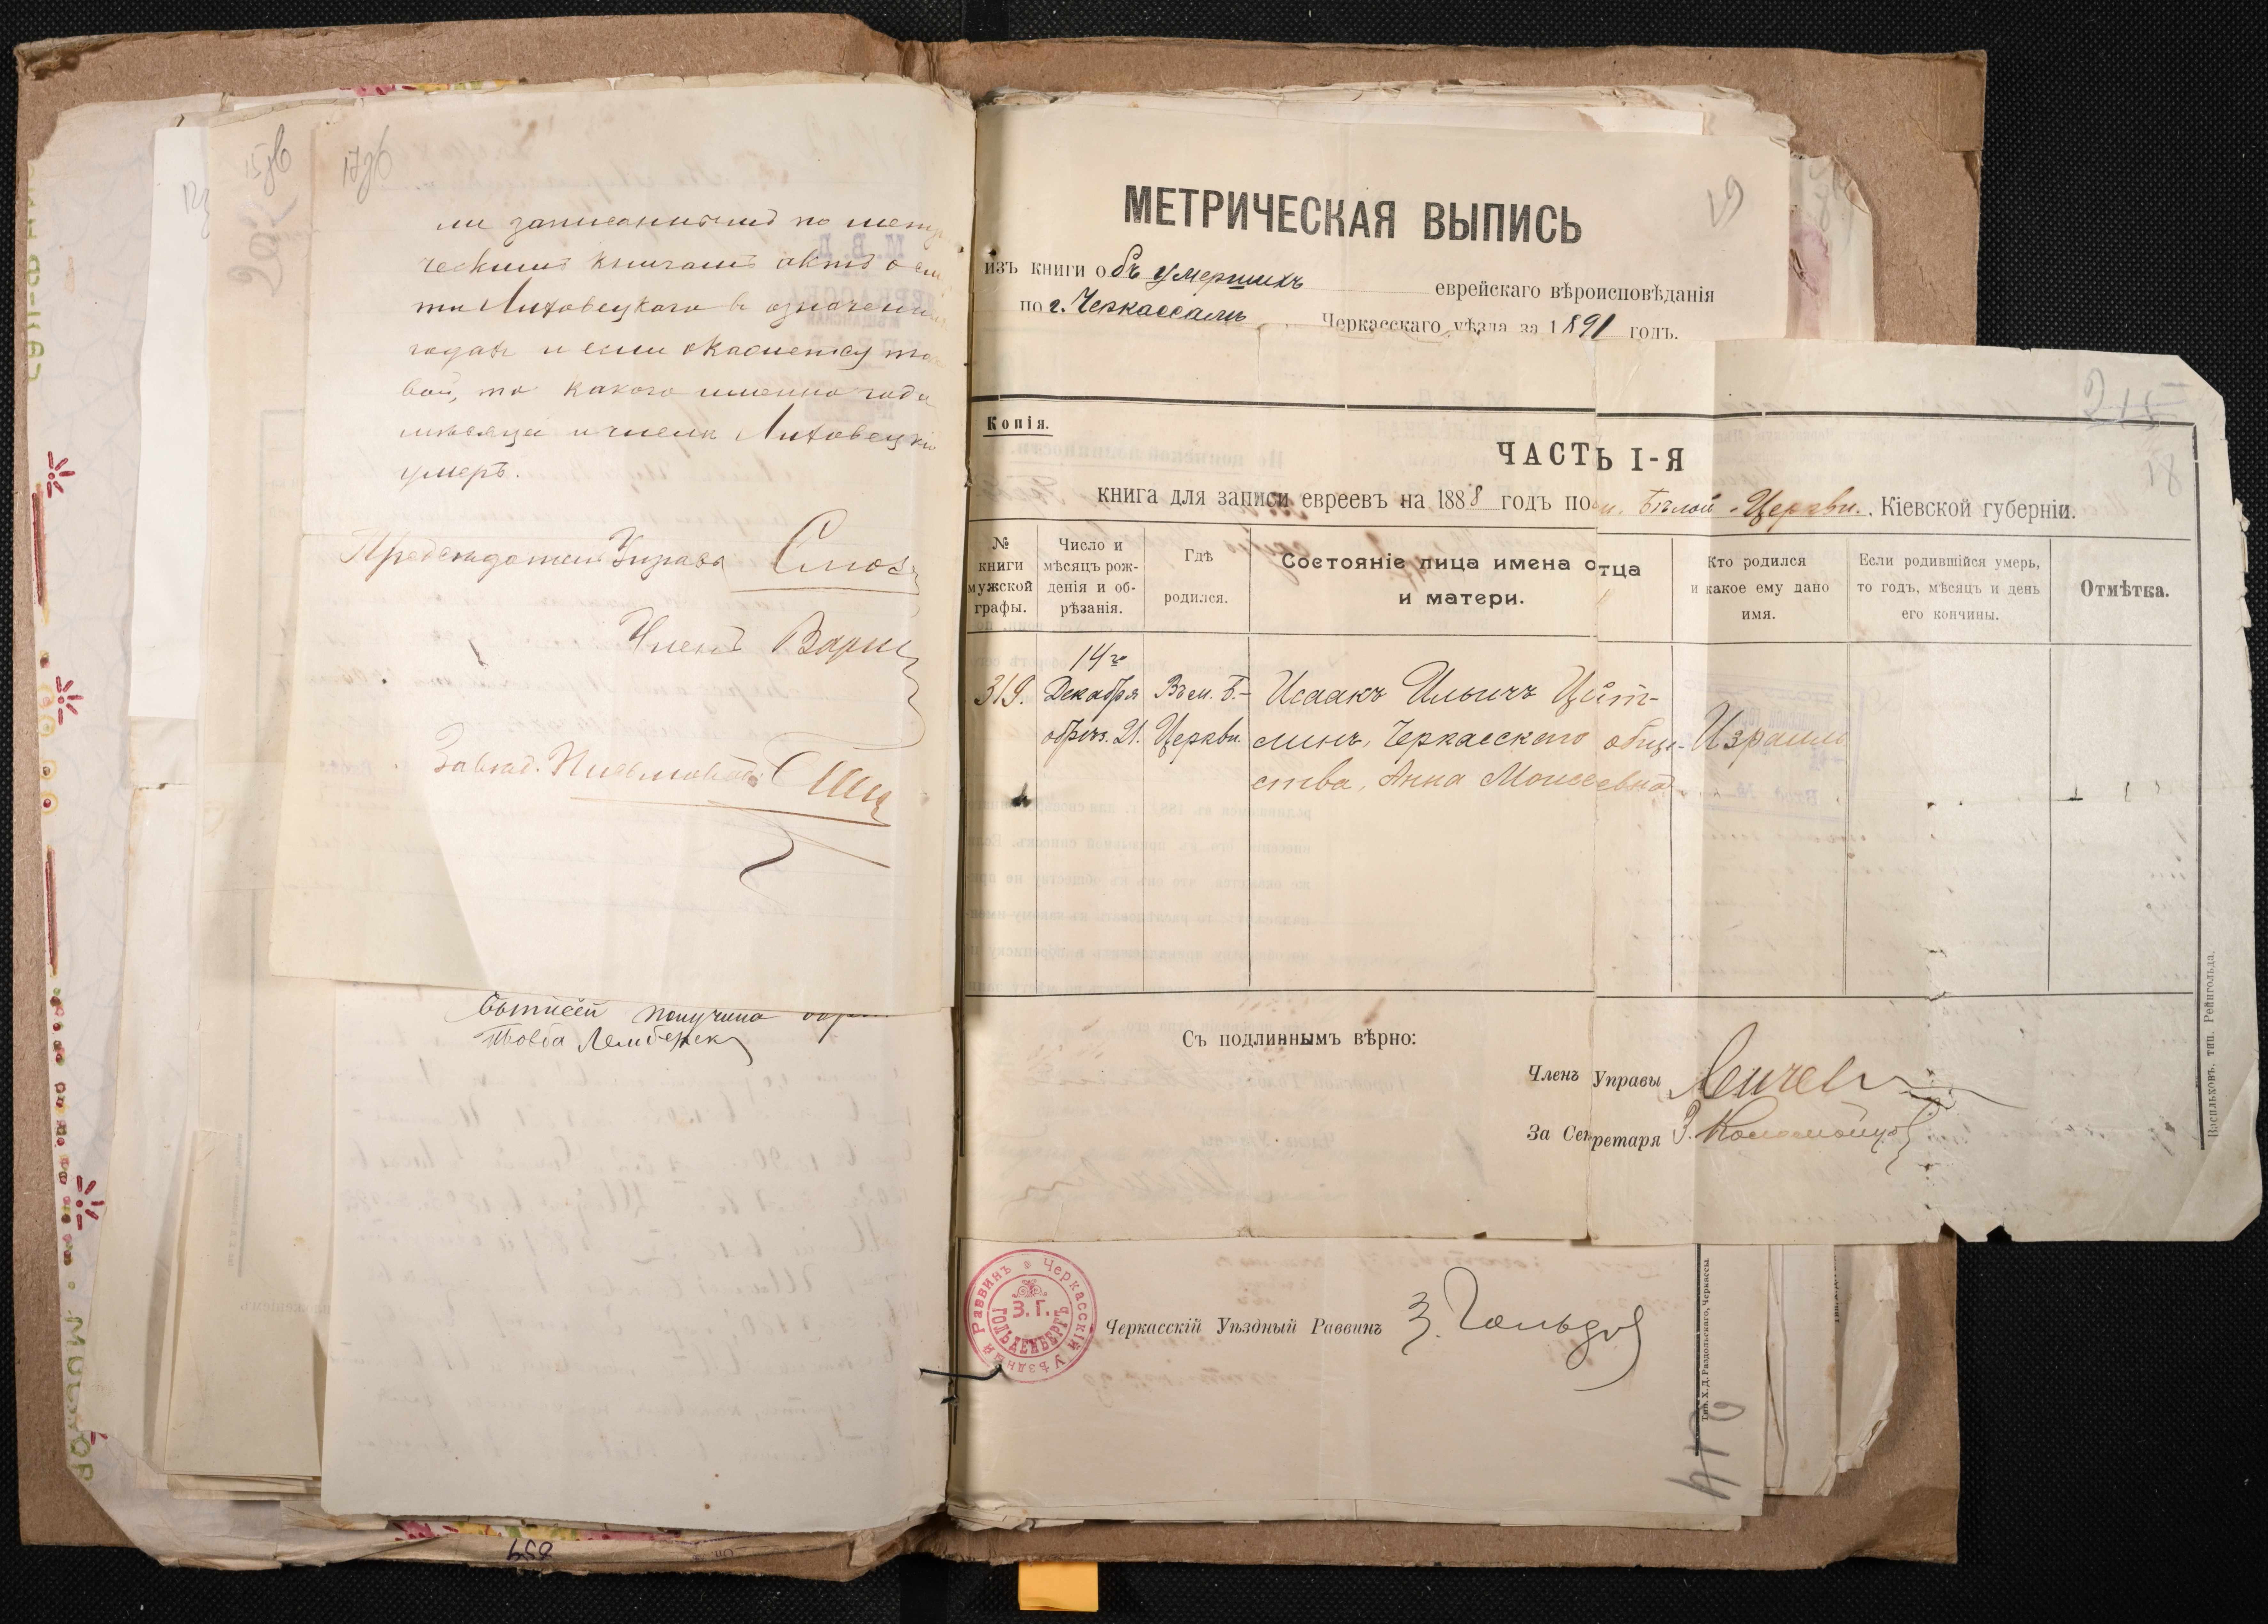 17об
15об
ли записанный по метри
ческимъ книгамъ актъ о смер
ти Лиховецкаго в означенных
годах и если окажется та
вой, то какого именно года
мѣсяца и числа Лиховецкiй
умеръ.
Предсѣдатель Управы
Членъ
Завѣд. Письмовод.
выписей получила
Товба Лемберск
859
МЕТРИЧЕСКАЯ ВЫПИСЬ
19
изъ книги объ умершихъ еврейскаго вѣроисповѣданія
по г. Черкассамъ Черкасскаго уѣзда за 1891 годъ.
215
18
Копія.
ЧАСТЬ I-Я
книга для записи евреевъ на 1888 годъ по м. Бѣлой-Церкви, Кіевской губерніи.
№ книги мужской графы.
Число и мѣсяцъ рожденія и обрѣзанія.
Гдѣ родился.
Состояніе лица имена отца и матери.
Кто родился и какое ему дано имя.
Если родившійся умеръ, то годъ, мѣсяцъ и день его кончины.
Отмѣтка.
319.
14го Декабря обрѣз. 21.
Въ м. Б.-Церкви.
Исаакъ Ильичъ Цейт-
линъ, Черкасскаго обще-
ства, Анна Моисеевна
Израиль
Съ подлиннымъ вѣрно:
Членъ Управы
За Секретаря З. Коломойцов
Васильковъ, тип. Рейнгольда.
Черкасскій Уѣздный Раввинъ
З. Г. ГОЛЬДЕНБЕРГЪ
Черкасскій Уѣздный Раввинъ З. Гольд
Тип. Х. Д. Раздольскаго, Черкассы
214